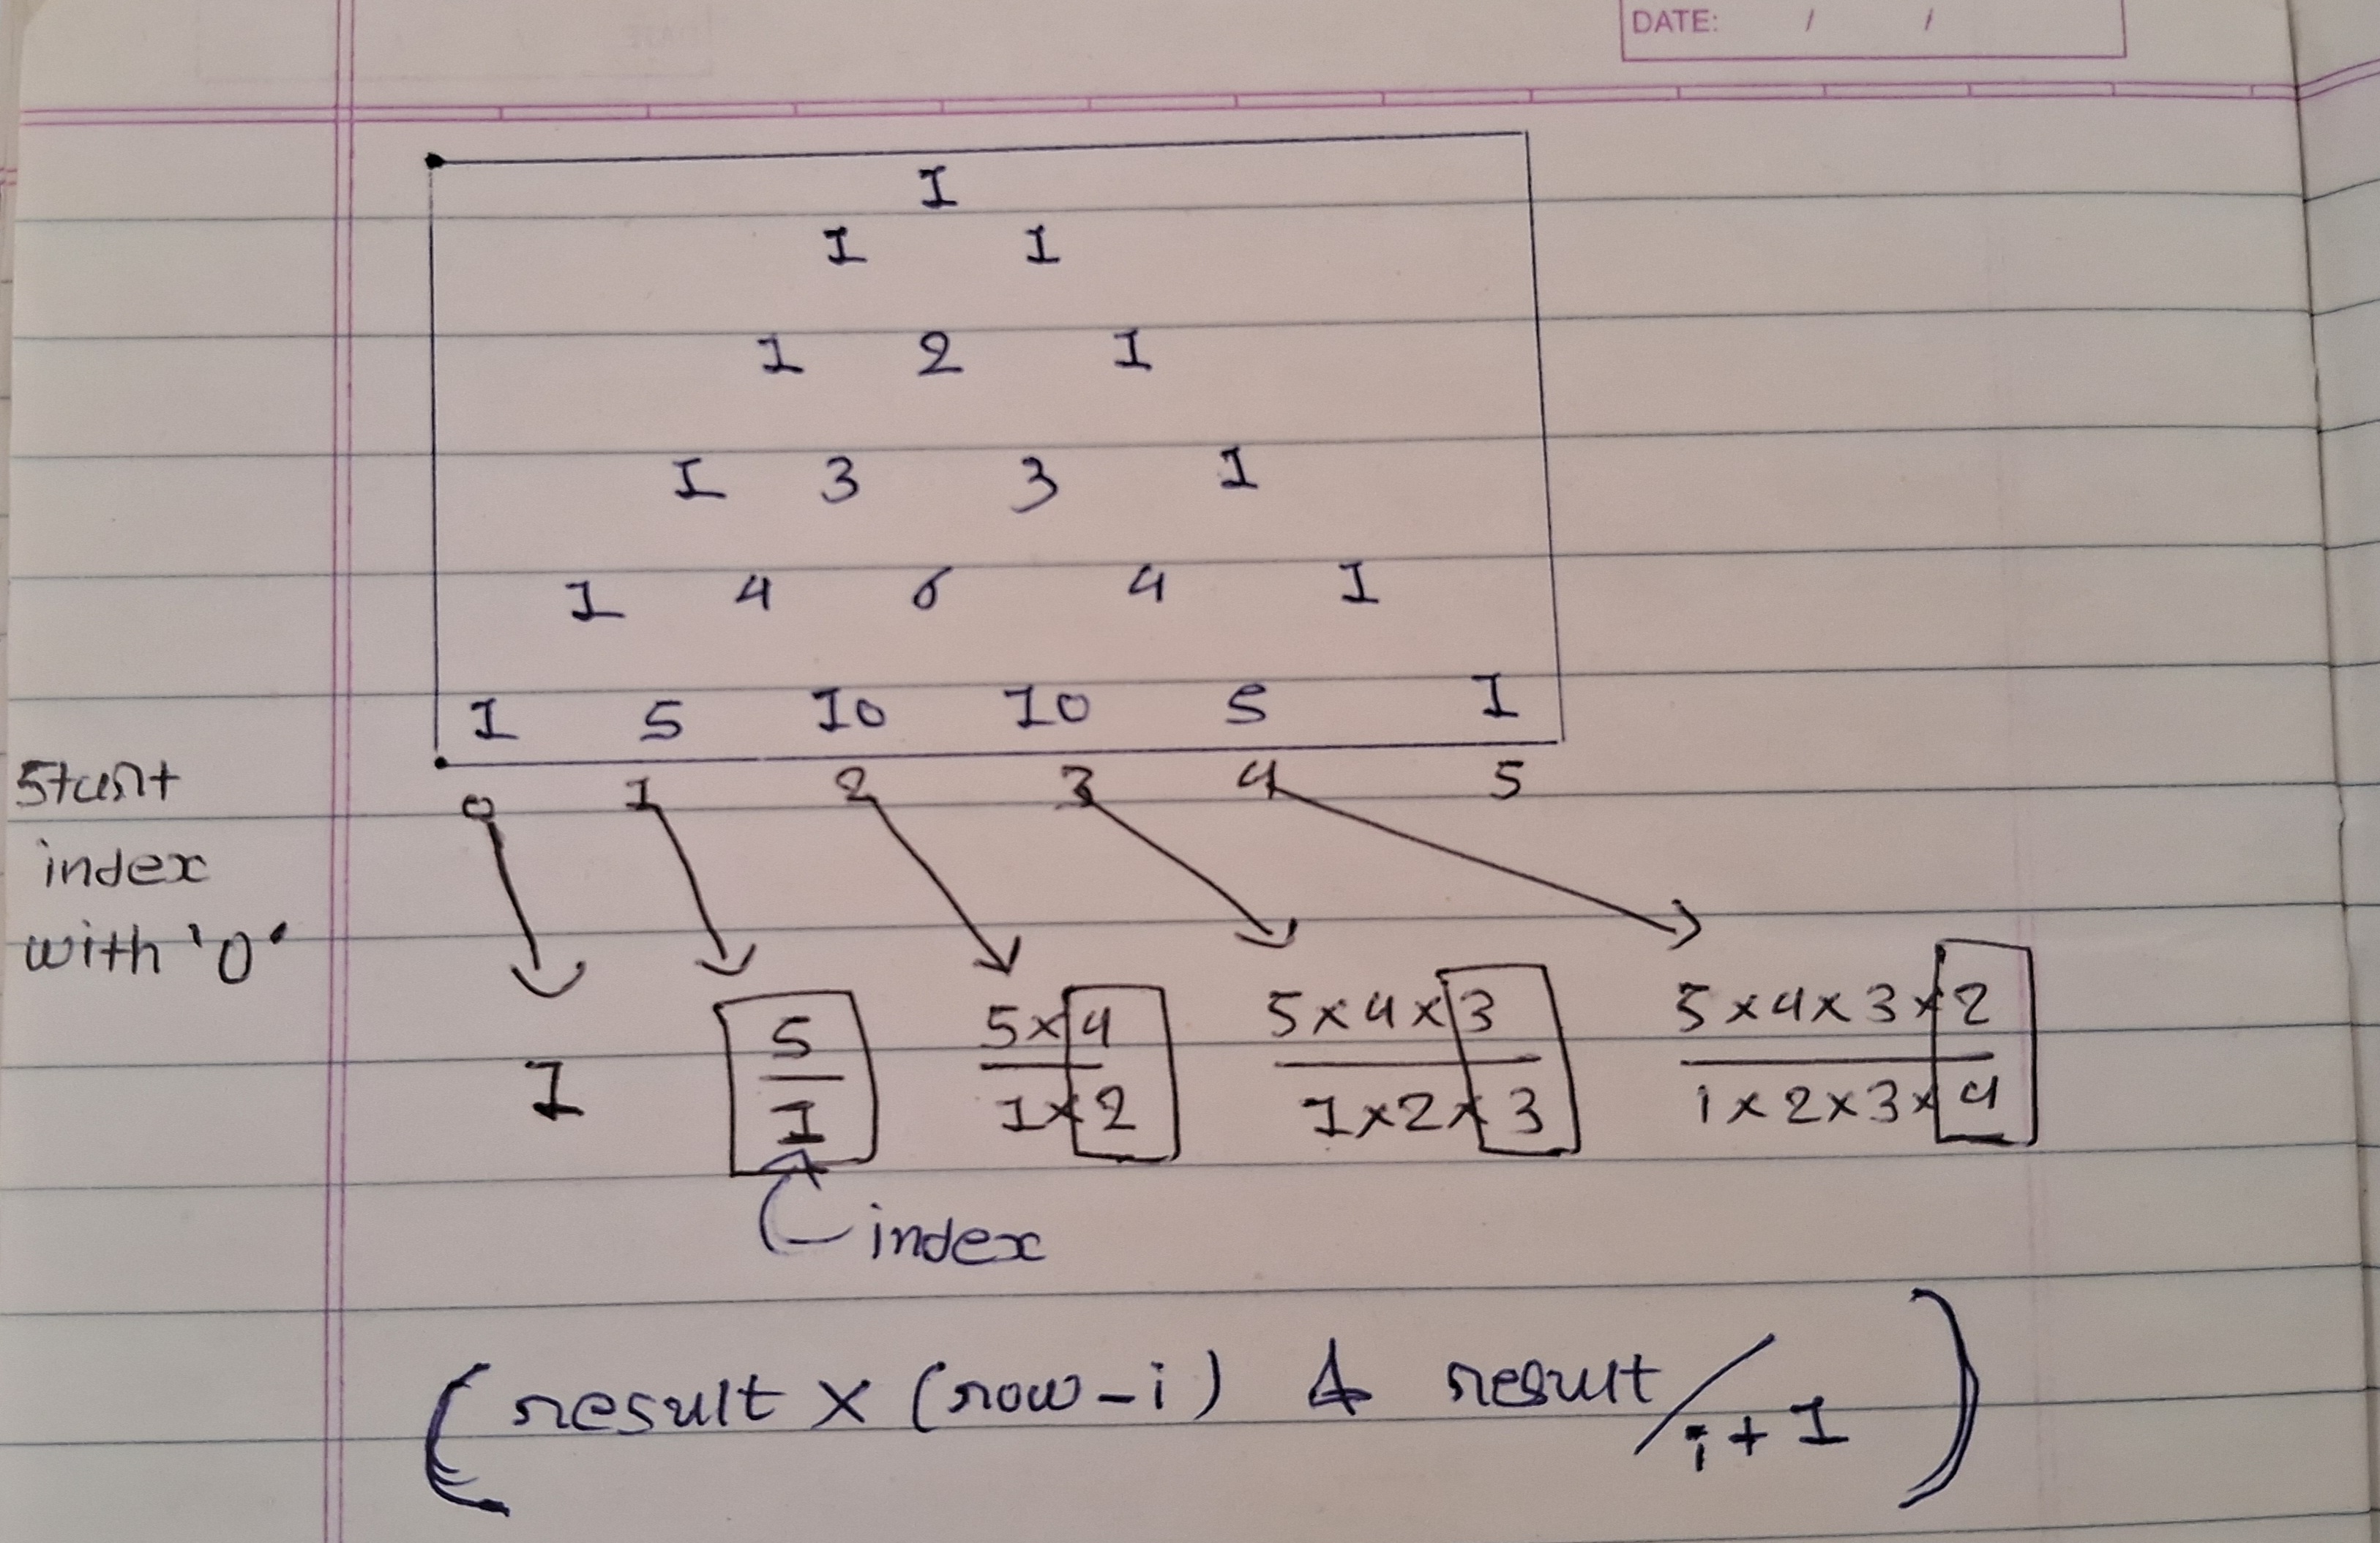 DATE: / /
1
1 1
1 2 1
1 3 3 1
1 4 6 4 1
1 5 10 10 5 1
0 1 2 3 4 5
Start
index
with '0'
1
5
1
5×4
1×2
5×4×3
1×2×3
5×4×3×2
1×2×3×4
index
(result × (row-i) & result/i+1)